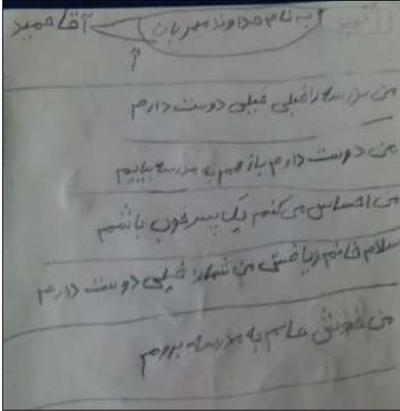 به نام خداوند مهربان آقا حمید
من مدرسه را خیلی خیلی دوست دارم
من دوست دارم باز هم به مدرسه بیایم
من احساس می کنم یک پسر خوب باشم
سلام خانم ریاضی من شما را خیلی دوست دارم
من خوش حالم به مدرسه بروم